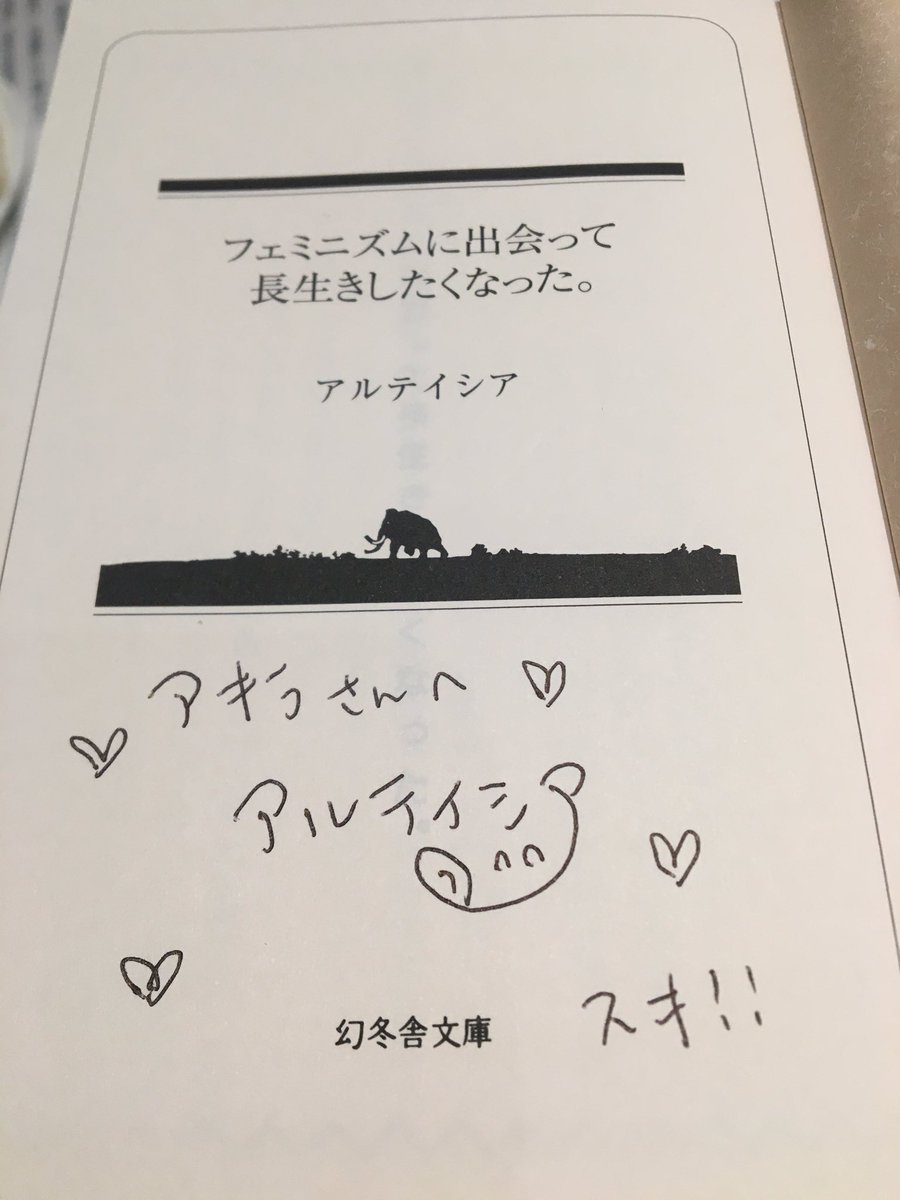 フェミニズムに出会って
長生きしたくなった。
アルテイシア
アキコさんへ
アルテイシア
スキ!!
幻冬舎文庫